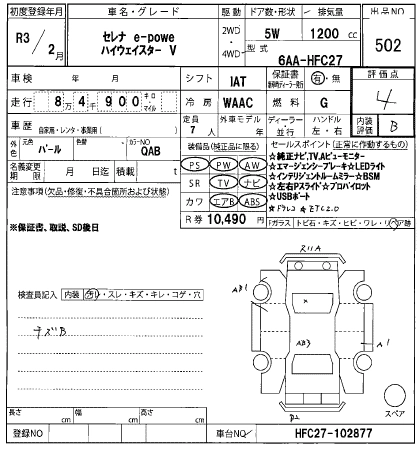 初度登録年月 車名・グレード 駆動 ドア数・形状 排気量 出品NO
R3/2月 セレナ e-powe ハイウェイスター V 2WD・4WD 5W 1200cc 502
型式 6AA-HFC27
車検 年 月 シフト IAT 保証書 有・無 評価点
走行 8万4千900 キロ・マイル 冷房 WAAC 燃料 G 4
車歴 自家用・レンタ・事業用( ) 定員 7人 外車モデル 年 ディーラー・並行 ハンドル 左・右 内装評価 B
外色 元色 パール 色替 カラーNO QAB 装備品(純正品に限る) セールスポイント(正常に作動するもの)
名義変更期限 月 日 迄 積載 t PS PW AW ★純正ナビ,TV,Aビューモニター
★エマージェンシーブレーキ★LEDライト
注意事項(欠品・修復・不具合箇所および状態) SR TV ナビ ★インテリジェントルームミラー★BSM
★左右Pスライド★プロパイロット
カワ エアB ABS ★USBポート
※保証書、取説、SD後日 R券 10,490円 ★ドラレコ ★ETC2.0
ガラス トビ石・キズ・ヒビ・ワレ・リペア跡
検査員記入 内装 汚レ・スレ・キズ・キレ・コゲ・穴
キズB
スリA
AB1
AB3
A1
B2
スペア
長さ cm 幅 cm 高さ cm
登録NO 車台NO HFC27-102877